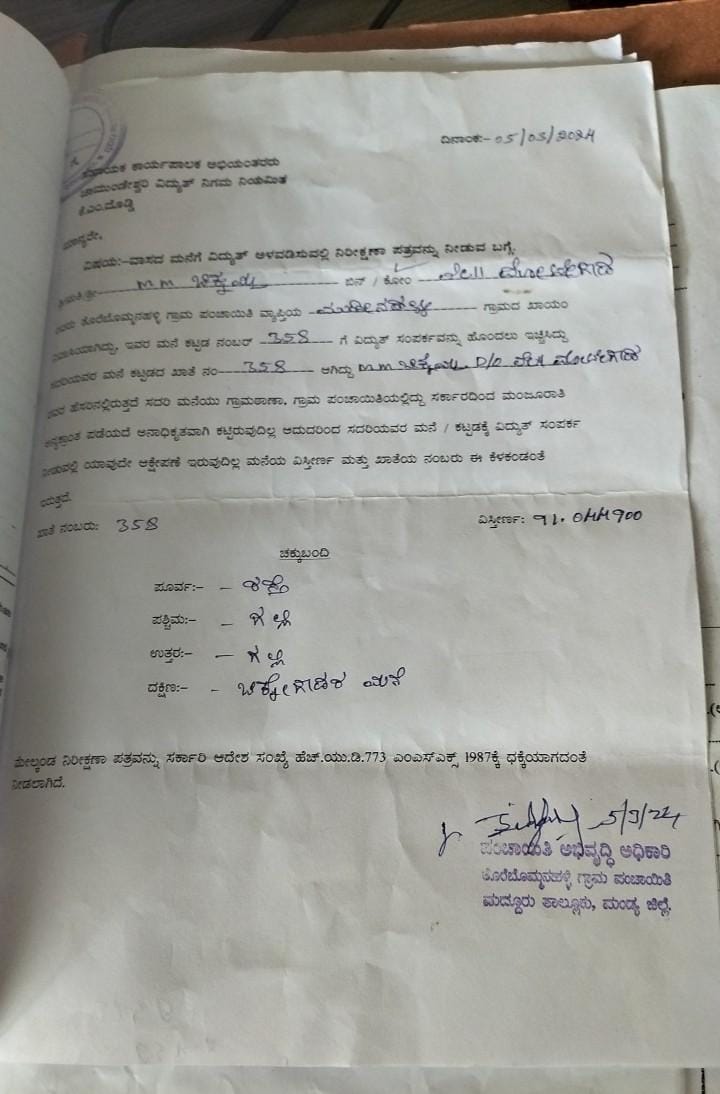 ದಿನಾಂಕ:- 05/03/2024
ಸಹಾಯಕ ಕಾರ್ಯಪಾಲಕ ಅಭಿಯಂತರರು
ಚಾಮುಂಡೇಶ್ವರಿ ವಿದ್ಯುತ್ ನಿಗಮ ನಿಯಮಿತ
ಕೆ.ಎಂ.ದೊಡ್ಡಿ
ಮಾನ್ಯರೇ,
ವಿಷಯ:-ವಾಸದ ಮನೆಗೆ ವಿದ್ಯುತ್ ಅಳವಡಿಸುವಲ್ಲಿ ನಿರೀಕ್ಷಣಾ ಪತ್ರವನ್ನು ನೀಡುವ ಬಗ್ಗೆ.
ಶ್ರೀಮತಿ/ಶ್ರೀ M M ಬಿನ್ / ಕೋಂ
ತೊರೆಬೊಮ್ಮನಹಳ್ಳಿ ಗ್ರಾಮ ಪಂಚಾಯಿತಿ ವ್ಯಾಪ್ತಿಯ ಗ್ರಾಮದ ಖಾಯಂ
ನಿವಾಸಿಯಾಗಿದ್ದು, ಇವರ ಮನೆ ಕಟ್ಟಡ ನಂಬರ್ 358 ಗೆ ವಿದ್ಯುತ್ ಸಂಪರ್ಕವನ್ನು ಹೊಂದಲು ಇಚ್ಚಿಸಿದ್ದು
ಸದರಿಯವರ ಮನೆ ಕಟ್ಟಡದ ಖಾತೆ ನಂ 358 ಆಗಿದ್ದು M M D/O
ರವರ ಹೆಸರಿನಲ್ಲಿರುತ್ತದೆ ಸದರಿ ಮನೆಯು ಗ್ರಾಮಠಾಣಾ, ಗ್ರಾಮ ಪಂಚಾಯಿತಿಯಲ್ಲಿದ್ದು ಸರ್ಕಾರದಿಂದ ಮಂಜೂರಾತಿ
ಅನ್ಯಕ್ರಾಂತ ಪಡೆಯದೆ ಅನಾಧಿಕೃತವಾಗಿ ಕಟ್ಟಿರುವುದಿಲ್ಲ ಆದುದರಿಂದ ಸದರಿಯವರ ಮನೆ / ಕಟ್ಟಡಕ್ಕೆ ವಿದ್ಯುತ್ ಸಂಪರ್ಕ
ನೀಡುವಲ್ಲಿ ಯಾವುದೇ ಆಕ್ಷೇಪಣೆ ಇರುವುದಿಲ್ಲ ಮನೆಯ ವಿಸ್ತೀರ್ಣ ಮತ್ತು ಖಾತೆಯ ನಂಬರು ಈ ಕೆಳಕಂಡಂತೆ
ಖಾತೆ ನಂಬರು: 358 ವಿಸ್ತೀರ್ಣ:
ಚಕ್ಕುಬಂದಿ
ಪೂರ್ವ:- - ರಸ್ತೆ
ಪಶ್ಚಿಮ:- - ಗಲ್ಲಿ
ಉತ್ತರ:- - ಗಲ್ಲಿ
ದಕ್ಷಿಣ:- - ಮನೆ
ಮೇಲ್ಕಂಡ ನಿರೀಕ್ಷಣಾ ಪತ್ರವನ್ನು ಸರ್ಕಾರಿ ಆದೇಶ ಸಂಖ್ಯೆ ಹೆಚ್.ಯು.ಡಿ.773 ಎಂಎಸ್ಎಕ್ಸ್ 1987ಕ್ಕೆ ಧಕ್ಕೆಯಾಗದಂತೆ
ನೀಡಲಾಗಿದೆ.
5/3/24
ಪಂಚಾಯಿತಿ ಅಭಿವೃದ್ಧಿ ಅಧಿಕಾರಿ
ತೊರೆಬೊಮ್ಮನಹಳ್ಳಿ ಗ್ರಾಮ ಪಂಚಾಯಿತಿ
ಮದ್ದೂರು ತಾಲ್ಲೂಕು, ಮಂಡ್ಯ ಜಿಲ್ಲೆ.